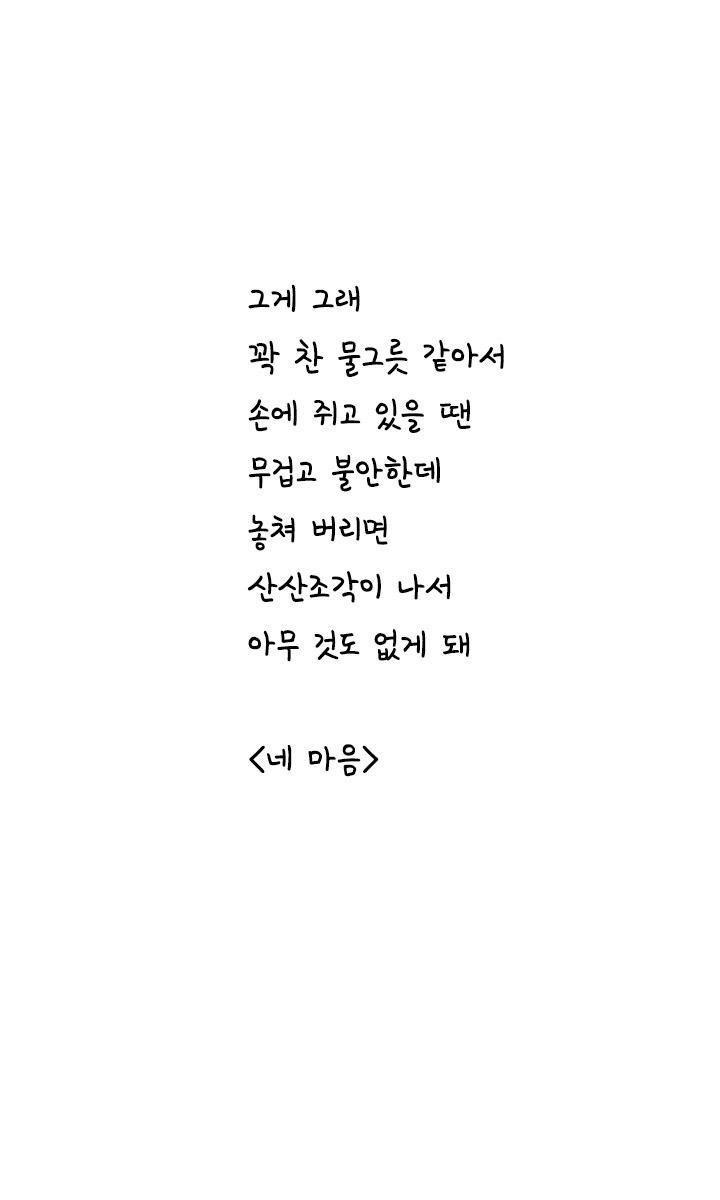 그게 그래
꽉 찬 물그릇 같아서
손에 쥐고 있을 땐
무겁고 불안한데
놓쳐 버리면
산산조각이 나서
아무 것도 없게 돼
<네 마음>